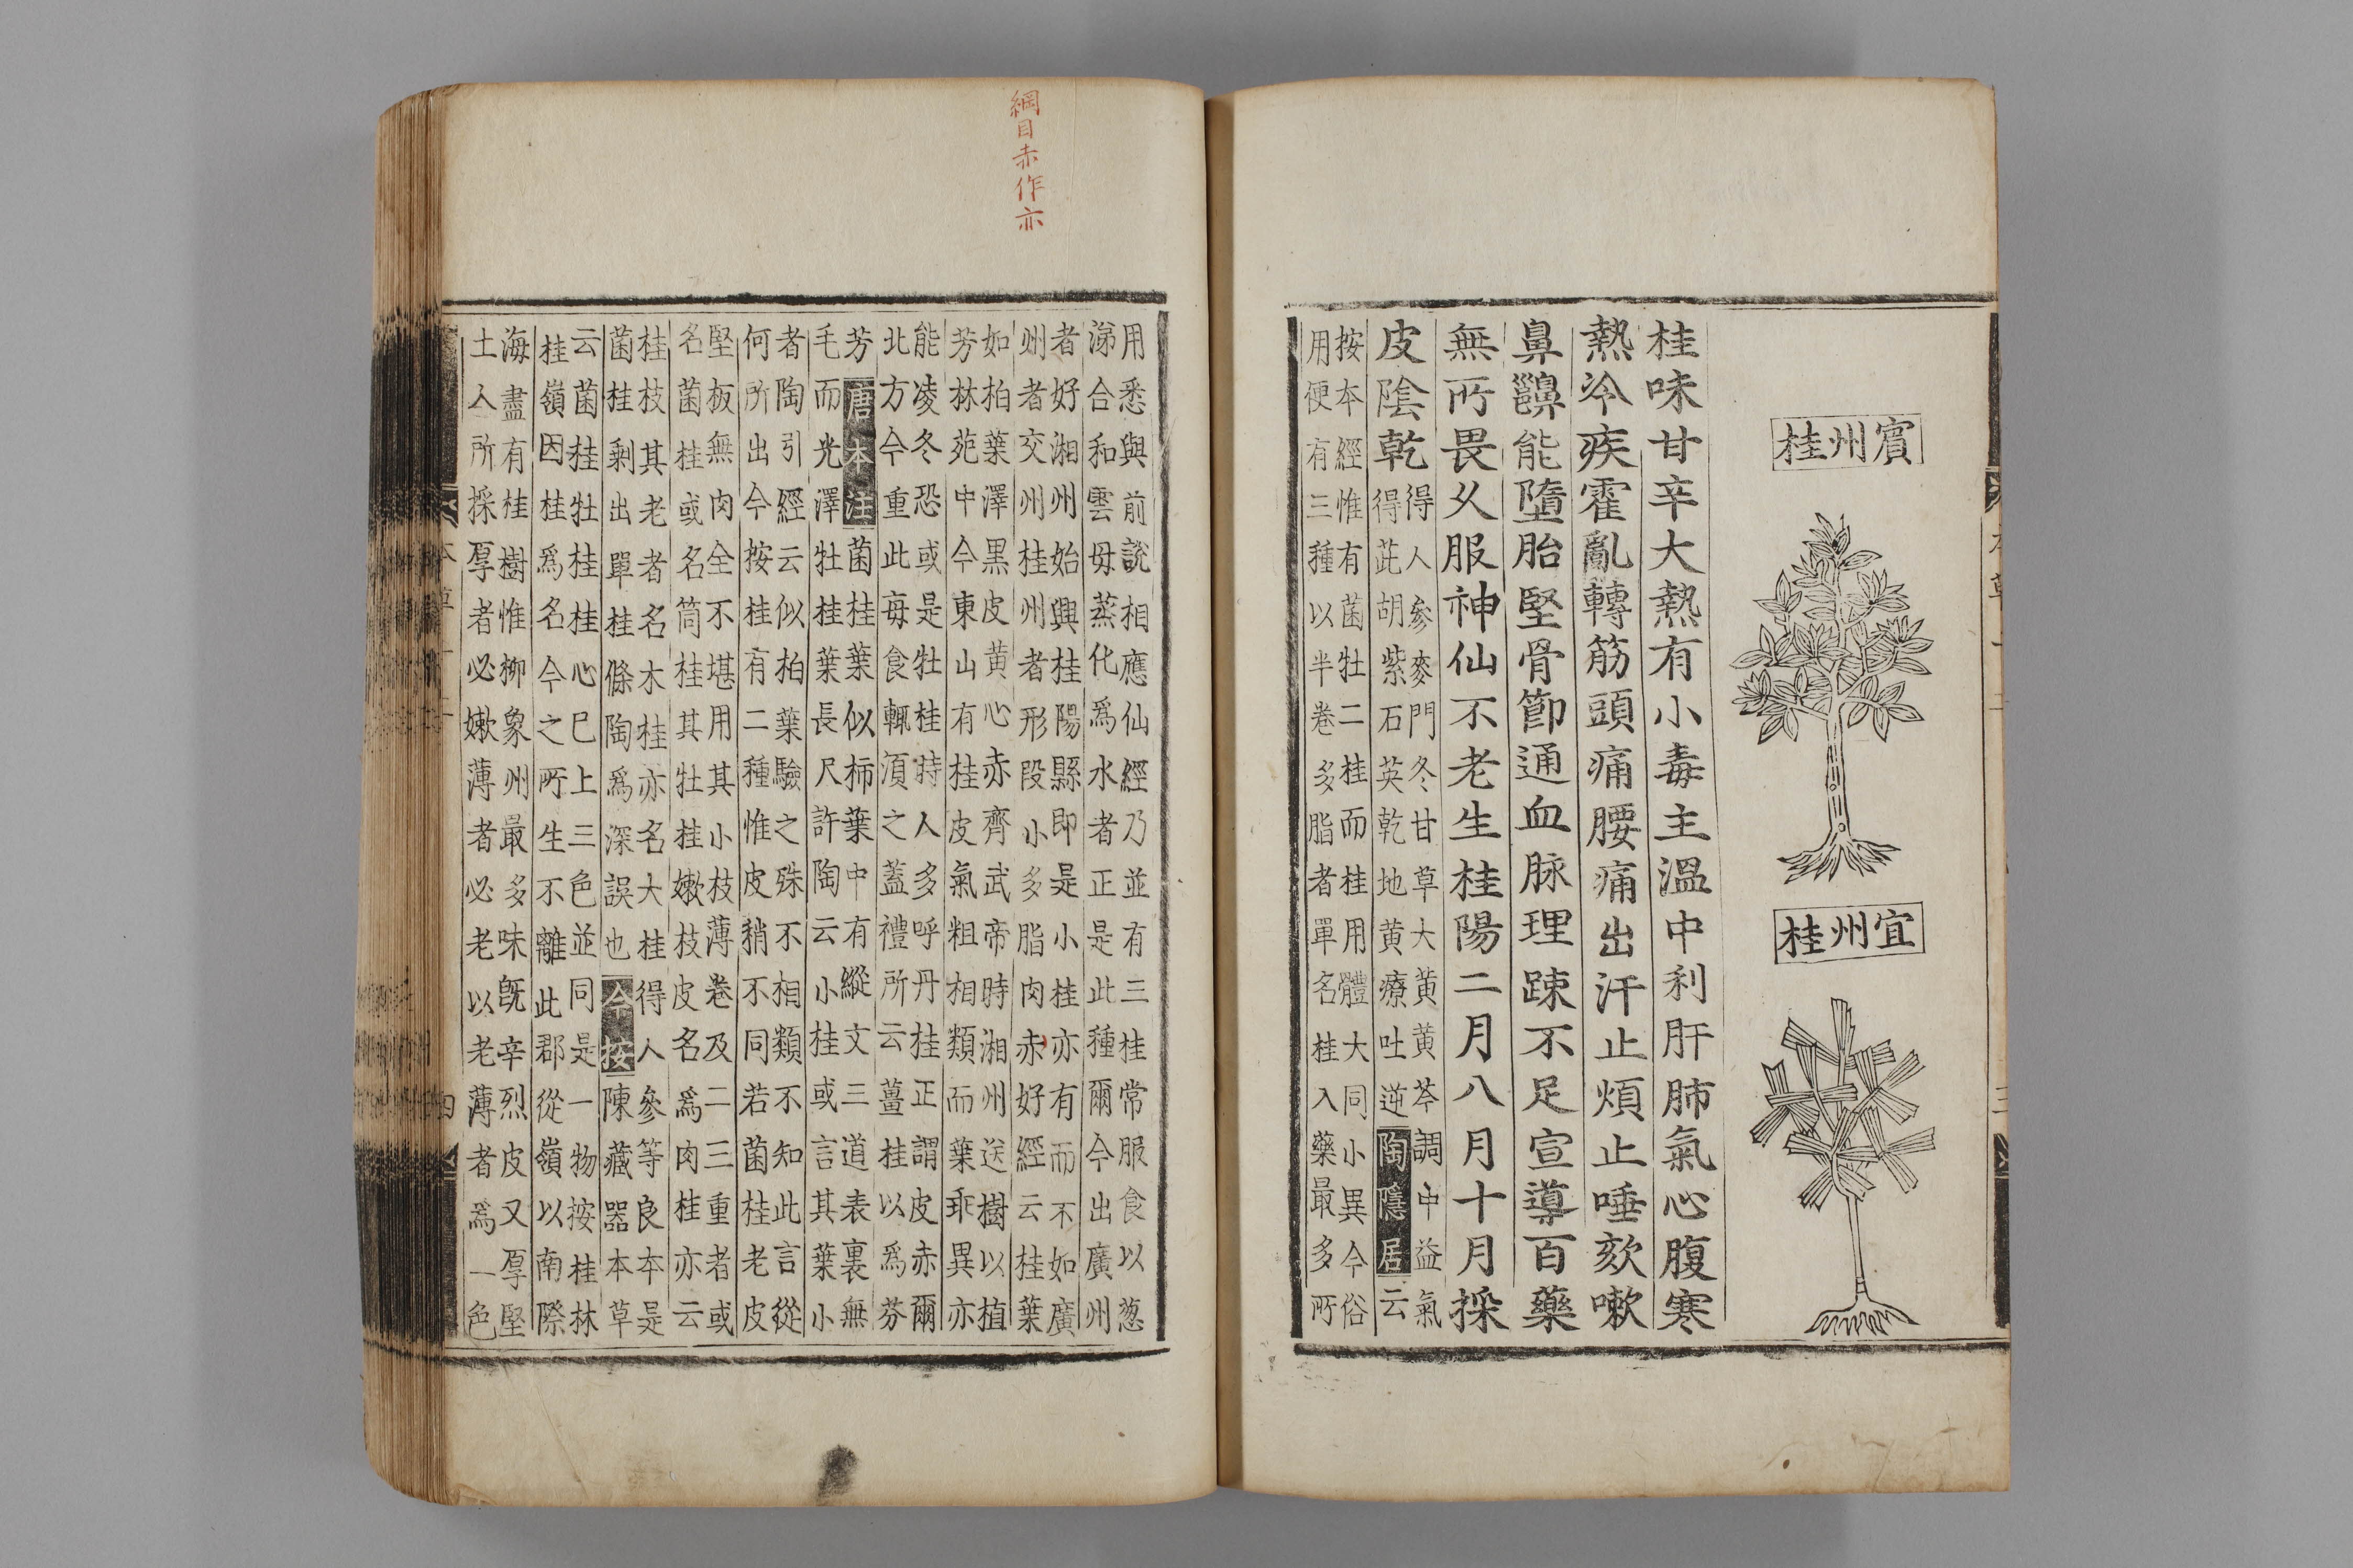 賓州桂
宜州桂
桂味甘辛大熱有小毒主溫中利肝肺氣心腹寒
熱冷疾霍亂轉筋頭痛腰痛出汗止煩止唾欬嗽
鼻齆能墮胎堅骨節通血脉理踈不足宣導百藥
無所畏乆服神仙不老生桂陽二月八月十月採
皮陰乾
得人參麥門冬甘草大黃黃芩調中益氣
得茈胡紫石英乾地黃療吐逆陶隱居云
按本經惟有菌牡二桂而桂用體大同小異今俗
用便有三種以半卷多脂者單名桂入藥最多所
用悉與前說相應仙經乃並有三桂常服食以葱
涕合和雲母蒸化爲水者正是此種爾今出廣州
者好湘州始興桂陽縣即是小桂亦有而不如廣
州者交州桂州者形段小多脂肉赤好經云桂葉
如柏葉澤黒皮黃心赤齊武帝時湘州送樹以植
芳林苑中今東山有桂皮氣粗相類而葉乖異亦
能凌冬恐或是牡桂時人多呼丹桂正謂皮赤爾
北方今重此每食輒湏之蓋禮所云薑桂以爲芬
芳唐本注菌桂葉似柿葉中有縱文三道表裏無
毛而光澤牡桂葉長尺許陶云小桂或言其葉小
者陶引經云似柏葉驗之殊不相類不知此言從
何所出今按桂有二種惟皮稍不同若菌桂老皮
堅板無肉全不堪用其小枝薄卷及二三重者或
名菌桂或名筒桂其牡桂嫩枝皮名爲肉桂亦云
桂枝其老者名木桂亦名大桂得人參等良本是
菌桂剩出單桂條陶爲深誤也今按陳藏器本草
云菌桂牡桂桂心巳上三色並同是一物按桂林
桂嶺因桂爲名今之所生不離此郡從嶺以南際
海盡有桂樹惟柳象州最多味旣辛烈皮又厚堅
土人所採厚者必嫩薄者必老以老薄者爲一色
綱目赤作亦